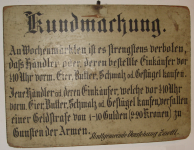 Kundmachung.
An Wochenmärkten ist es strengstens verboten,
daß Händler oder deren bestellte Einkäufer vor
½10 Uhr vorm. Eier, Butter, Schmalz od. Geflügel kaufen.
Jene Händler od. deren Einkäufer, welche vor ½10 Uhr
vorm. Eier, Butter, Schmalz od. Geflügel kaufen, verfallen
einer Geldstrafe von 1-10 Gulden (2-20 Kronen) zu
Gunsten der Armen.
Stadtgemeinde